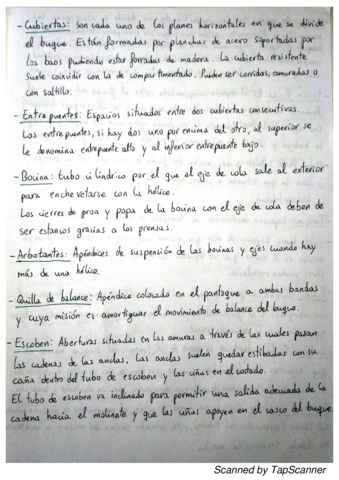 - Cubiertas: son cada uno de los planos horizontales en que se divide
el buque. Están formadas por planchas de acero soportadas por
los baos pudiendo estar forradas de madera. La cubierta resistente
suele coincidir con la de compartimentado. Pueden ser corridas, amuradas o
con saltillo.
- Entrepuentes: Espacios situados entre dos cubiertas consecutivas.
Los entrepuentes, si hay dos uno por encima del otro, al superior se
le denomina entrepuente alto y al inferior entrepuente bajo.
- Bocina: tubo cilíndrico por el que el eje de cola sale al exterior
para enchevetarse con la hélice.
Los cierres de proa y popa de la bocina con el eje de cola deben de
ser estancos gracias a los prensas.
- Arbotantes: Apéndices de suspensión de las bocinas y ejes cuando hay
más de una hélice.
- Quilla de balance: Apéndice colocado en el pantoque a ambas bandas
y cuya misión es amortiguar el movimiento de balance del buque.
- Escoben: Aberturas situadas en las amuras a través de las cuales pasan
las cadenas de las anclas. Las anclas suelen quedar estibadas con su
caña dentro del tubo de escoben y las uñas en el costado.
El tubo de escoben va inclinado para permitir una salida adecuada de la
cadena hacia el molinete y que las uñas apoyen en el casco del buque
Scanned by TapScanner